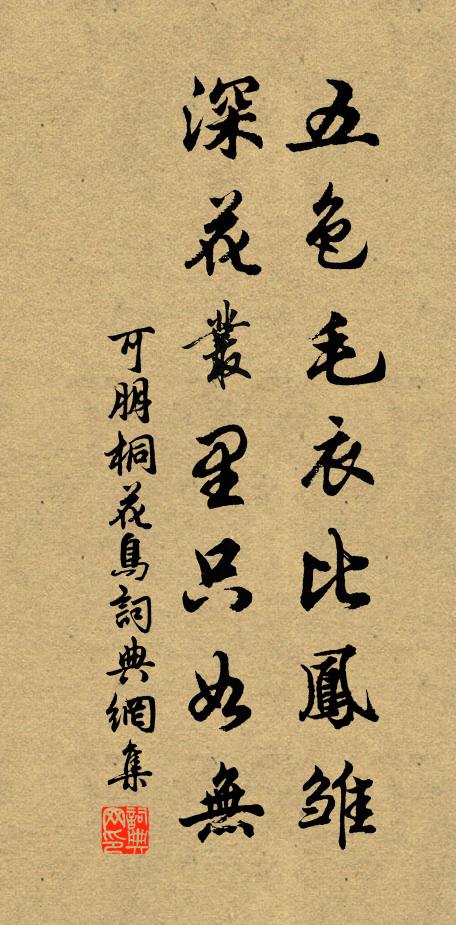 五色毛衣比鳳雛
深花叢里只如無
可朋桐花鳥詞典網集
詞典網印